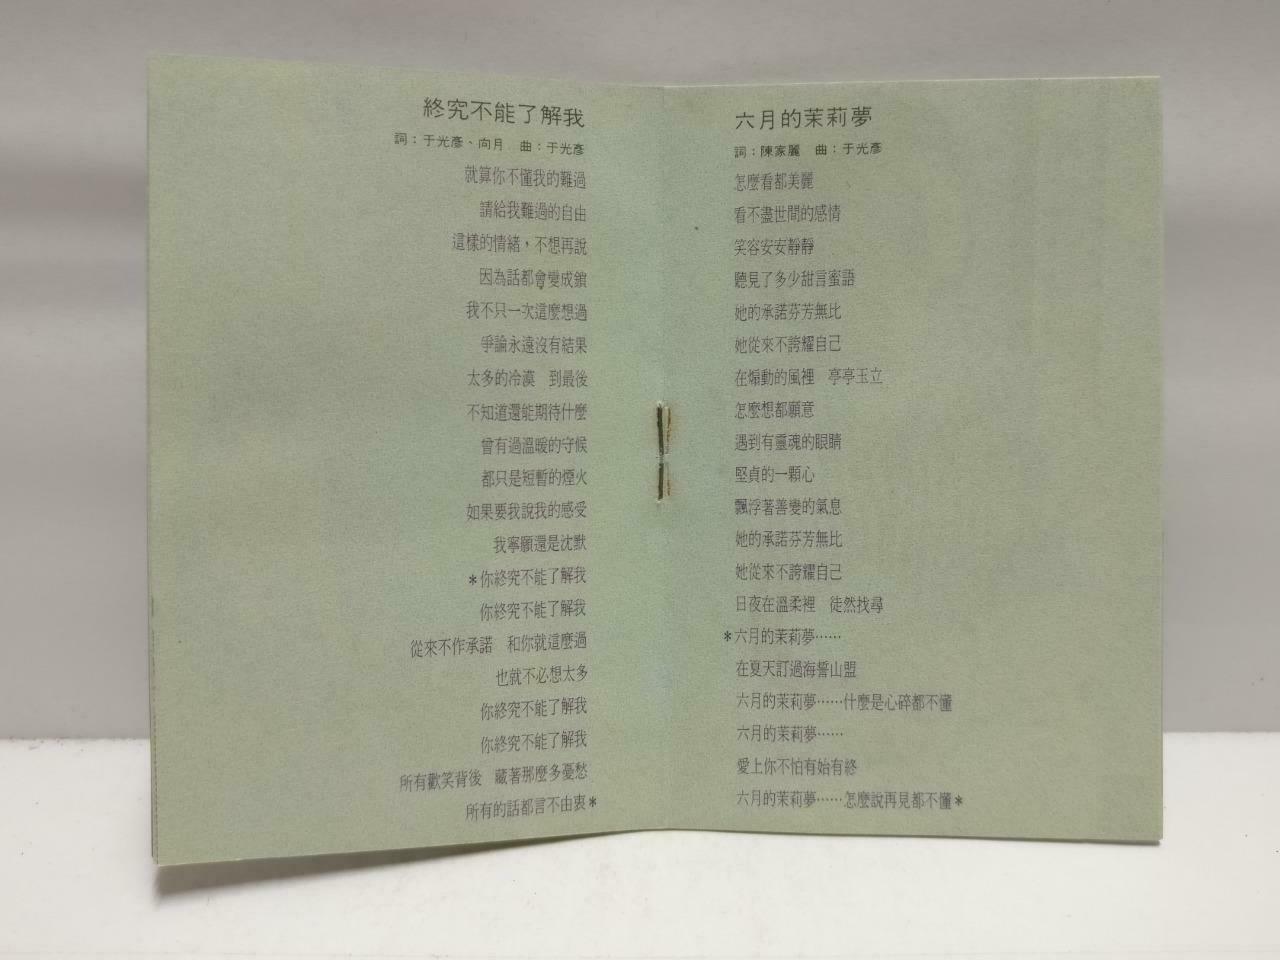 終究不能了解我
詞：于光彥、向月　曲：于光彥
就算你不懂我的難過
請給我難過的自由
這樣的情緒，不想再說
因為話都會變成鎖
我不只一次這麼想過
爭論永遠沒有結果
太多的冷漠　到最後
不知道還能期待什麼
曾有過溫暖的守候
都只是短暫的煙火
如果要我說我的感受
我寧願還是沈默
＊你終究不能了解我
你終究不能了解我
從來不作承諾　和你就這麼過
也就不必想太多
你終究不能了解我
你終究不能了解我
所有歡笑背後　藏著那麼多憂愁
所有的話都言不由衷＊
六月的茉莉夢
詞：陳家麗　曲：于光彥
怎麼看都美麗
看不盡世間的感情
笑容安安靜靜
聽見了多少甜言蜜語
她的承諾芬芳無比
她從來不誇耀自己
在煽動的風裡　亭亭玉立
怎麼想都願意
遇到有靈魂的眼睛
堅貞的一顆心
飄浮著善變的氣息
她的承諾芬芳無比
她從來不誇耀自己
日夜在溫柔裡　徒然找尋
＊六月的茉莉夢⋯⋯
在夏天訂過海誓山盟
六月的茉莉夢⋯⋯什麼是心碎都不懂
六月的茉莉夢⋯⋯
愛上你不怕有始有終
六月的茉莉夢⋯⋯怎麼說再見都不懂＊